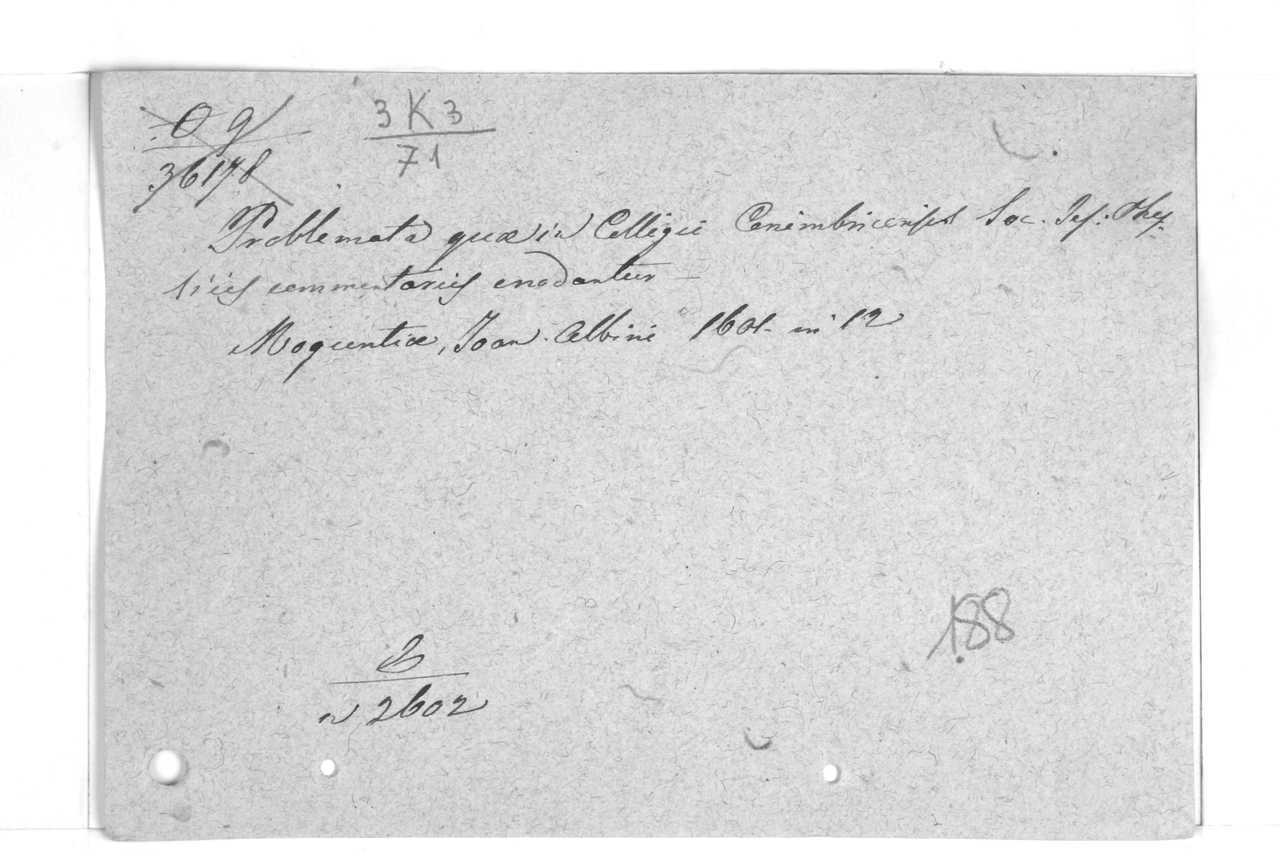 O g 3 K 3
36178 71
Problemata quæ in Collegii Conimbricensis Soc. Jes. Phy-
sicis commentariis enodantur —
Moguntiæ, Joan. Albini 1601. in 12
188
n 2602